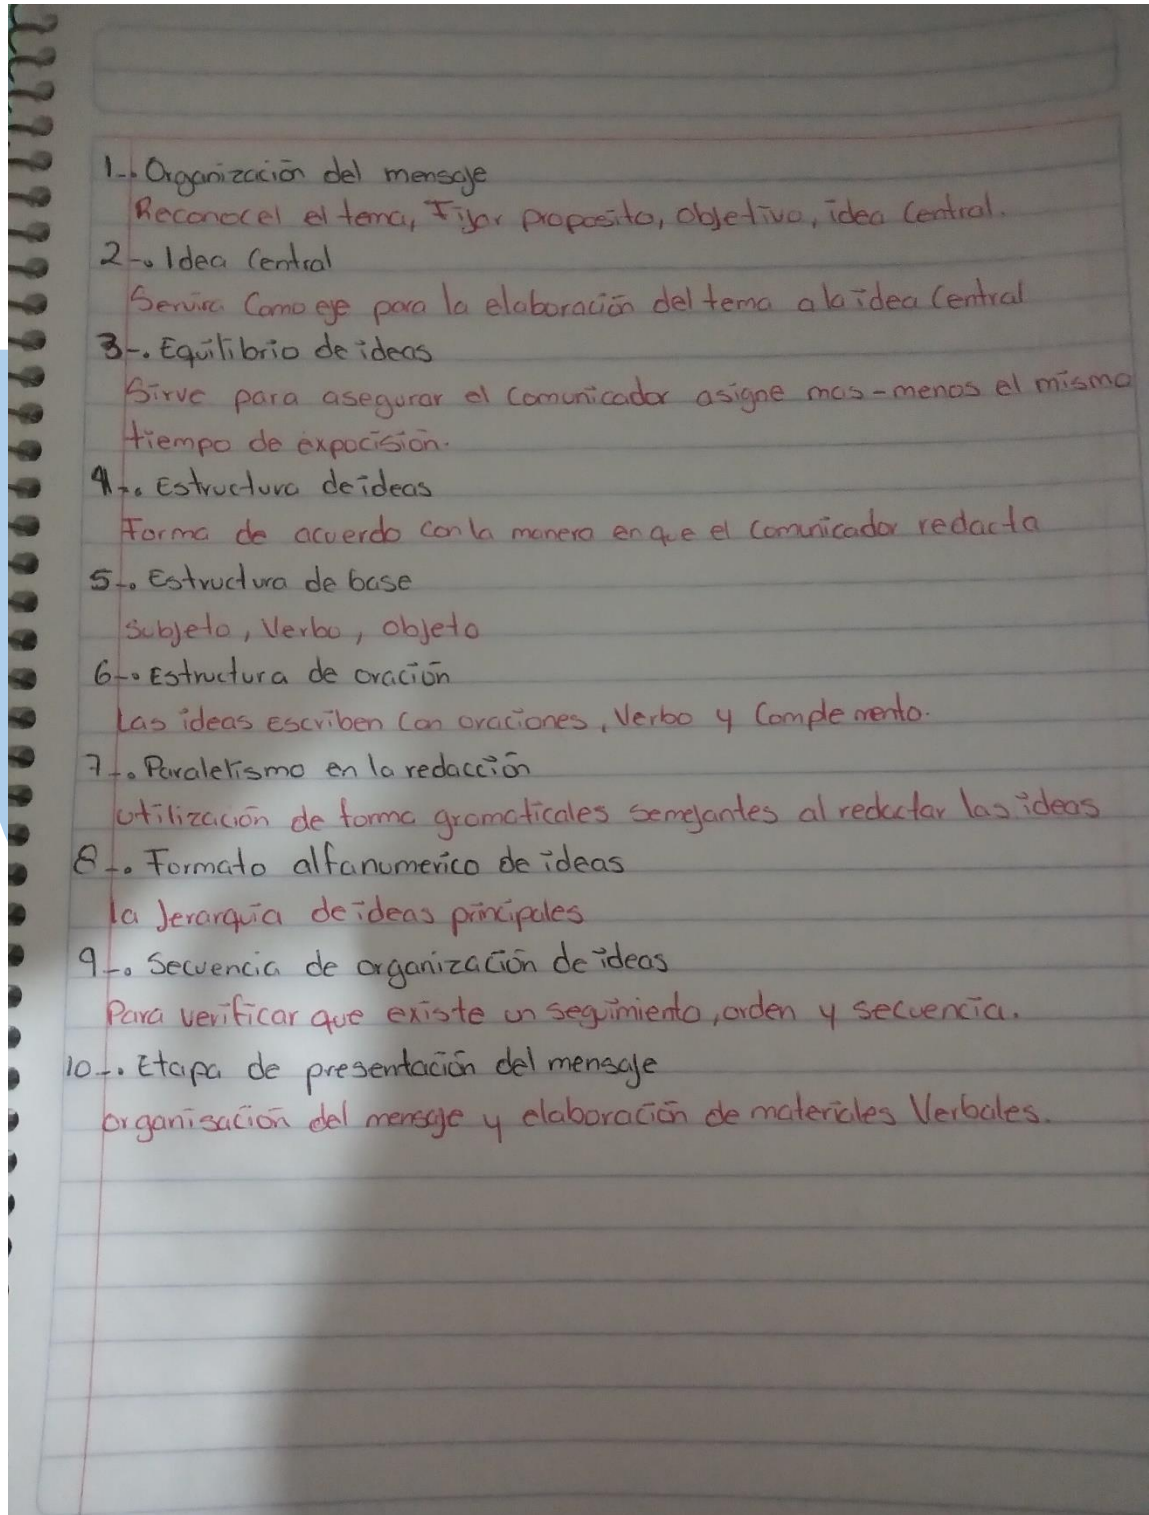 1-. Organización del mensaje
Reconocel el tema, Fijar proposito, objetivo, idea Central.
2-. Idea Central
Servira Como eje para la elaboración del tema a la idea Central
3-. Equilibrio de ideas
Sirve para asegurar el Comunicador asigne mas-menos el mismo
tiempo de expocisión.
4-. Estructura de ideas
Forma de acuerdo con la manera en que el Comunicador redacta
5-. Estructura de base
Subjeto, Verbo, objeto
6-. Estructura de oración
Las ideas escriben con oraciones, Verbo y Complemento.
7-. Paralelismo en la redacción
utilización de forma gramaticales semejantes al redactar las ideas
8-. Formato alfanumerico de ideas
la Jerarquia de ideas principales
9-. Secuencia de organización de ideas
Para verificar que existe un seguimiento, orden y secuencia.
10-. Etapa de presentación del mensaje
organisación del mensaje y elaboración de materiales Verbales.